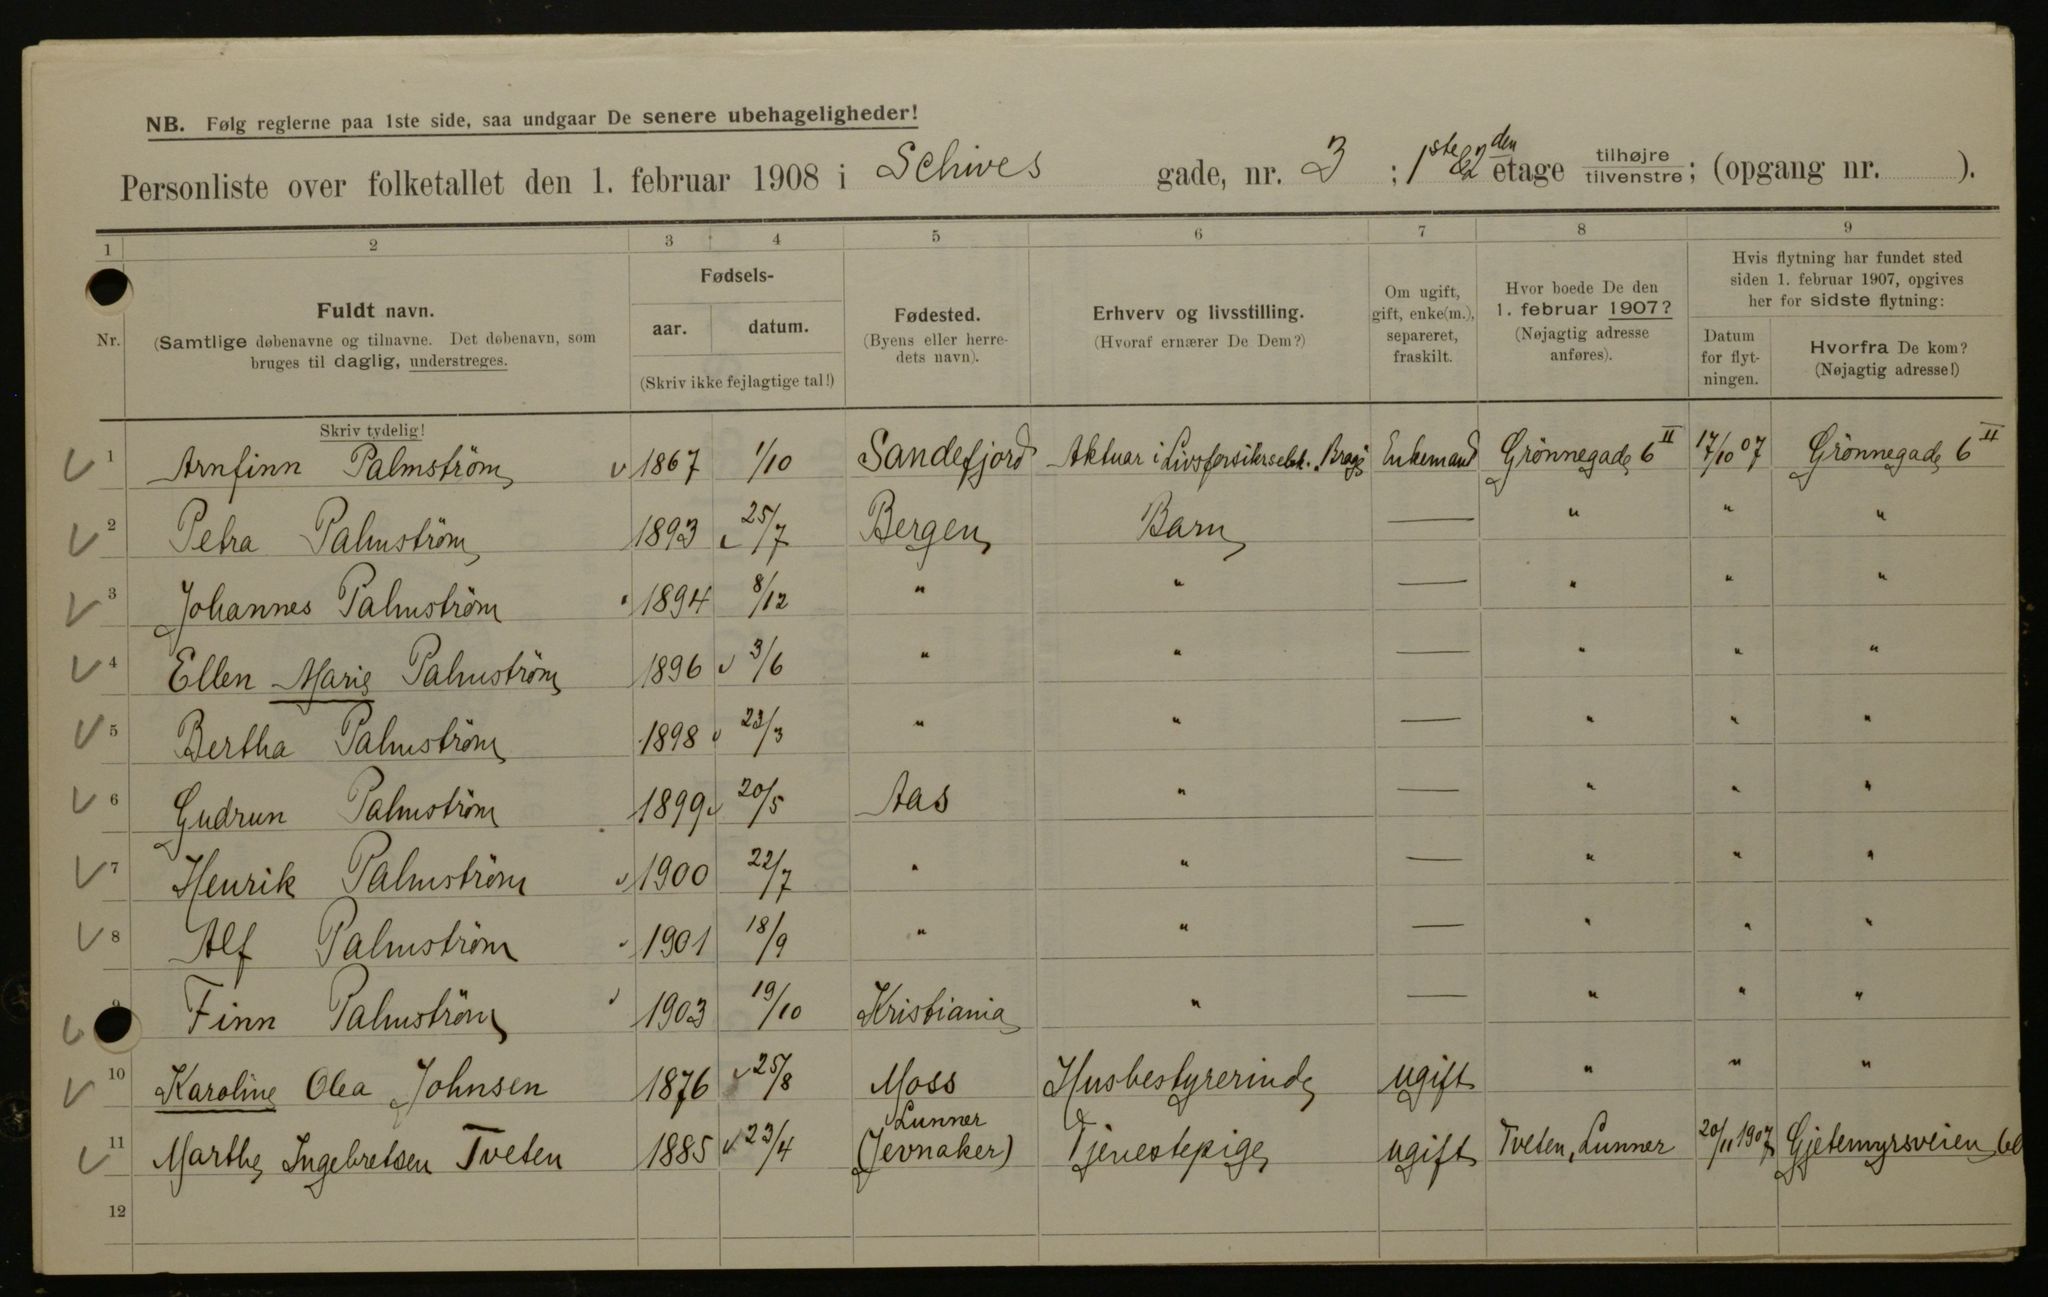 NB. Følg reglerne paa 1ste side, saa undgaar De senere ubehageligheder!
Personliste over folketallet den 1. februar 1908 i Schives gade, nr. 3 ; 1ste & 2den etage tilhøjre tilvenstre; (opgang nr. ).
1 2 3 4 5 6 7 8 9
Nr.
Fuldt navn.
(Samtlige døbenavne og tilnavne. Det døbenavn, som
bruges til daglig, understreges.
Skriv tydelig!
Fødsels-
aar. datum.
(Skriv ikke fejlagtige tal!)
Fødested.
(Byens eller herre-
dets navn).
Erhverv og livsstilling.
(Hvoraf ernærer De Dem?)
Om ugift,
gift, enke(m.),
separeret,
fraskilt.
Hvor boede De den
1. februar 1907?
(Nøjagtig adresse
anføres).
Hvis flytning har fundet sted
siden 1. februar 1907, opgives
her for sidste flytning:
Datum
for flyt-
ningen.
Hvorfra De kom?
(Nøjagtig adresse!)
1 Arnfinn Palmström 1867 1/10 Sandefjord Aktuar i Livsforsikrselsk. "Brage" Enkemand Grönnegade 6 II 17/10 07 Grönnegade 6 II
2 Petra Palmström 1893 25/7 Bergen Barn — " " "
3 Johannes Palmström 1894 8/12 " " — " " "
4 Ellen Marie Palmström 1896 3/6 " " — " " "
5 Bertha Palmström 1898 23/3 " " — " " "
6 Gudrun Palmström 1899 20/5 Aas " — " " "
7 Henrik Palmström 1900 22/7 " " — " " "
8 Alf Palmström 1901 18/9 " " — " " "
9 Finn Palmström 1903 19/10 Kristiania " — " " "
10 Karoline Olea Johnsen 1876 25/8 Moss Husbestyrerinde ugift " " "
11 Marthe Ingebretsen Tveten 1885 23/4 Lunner (Jevnaker) Tjenestepige ugift Tveten, Lunner 20/11 1907 Gjetemyrsveien
12